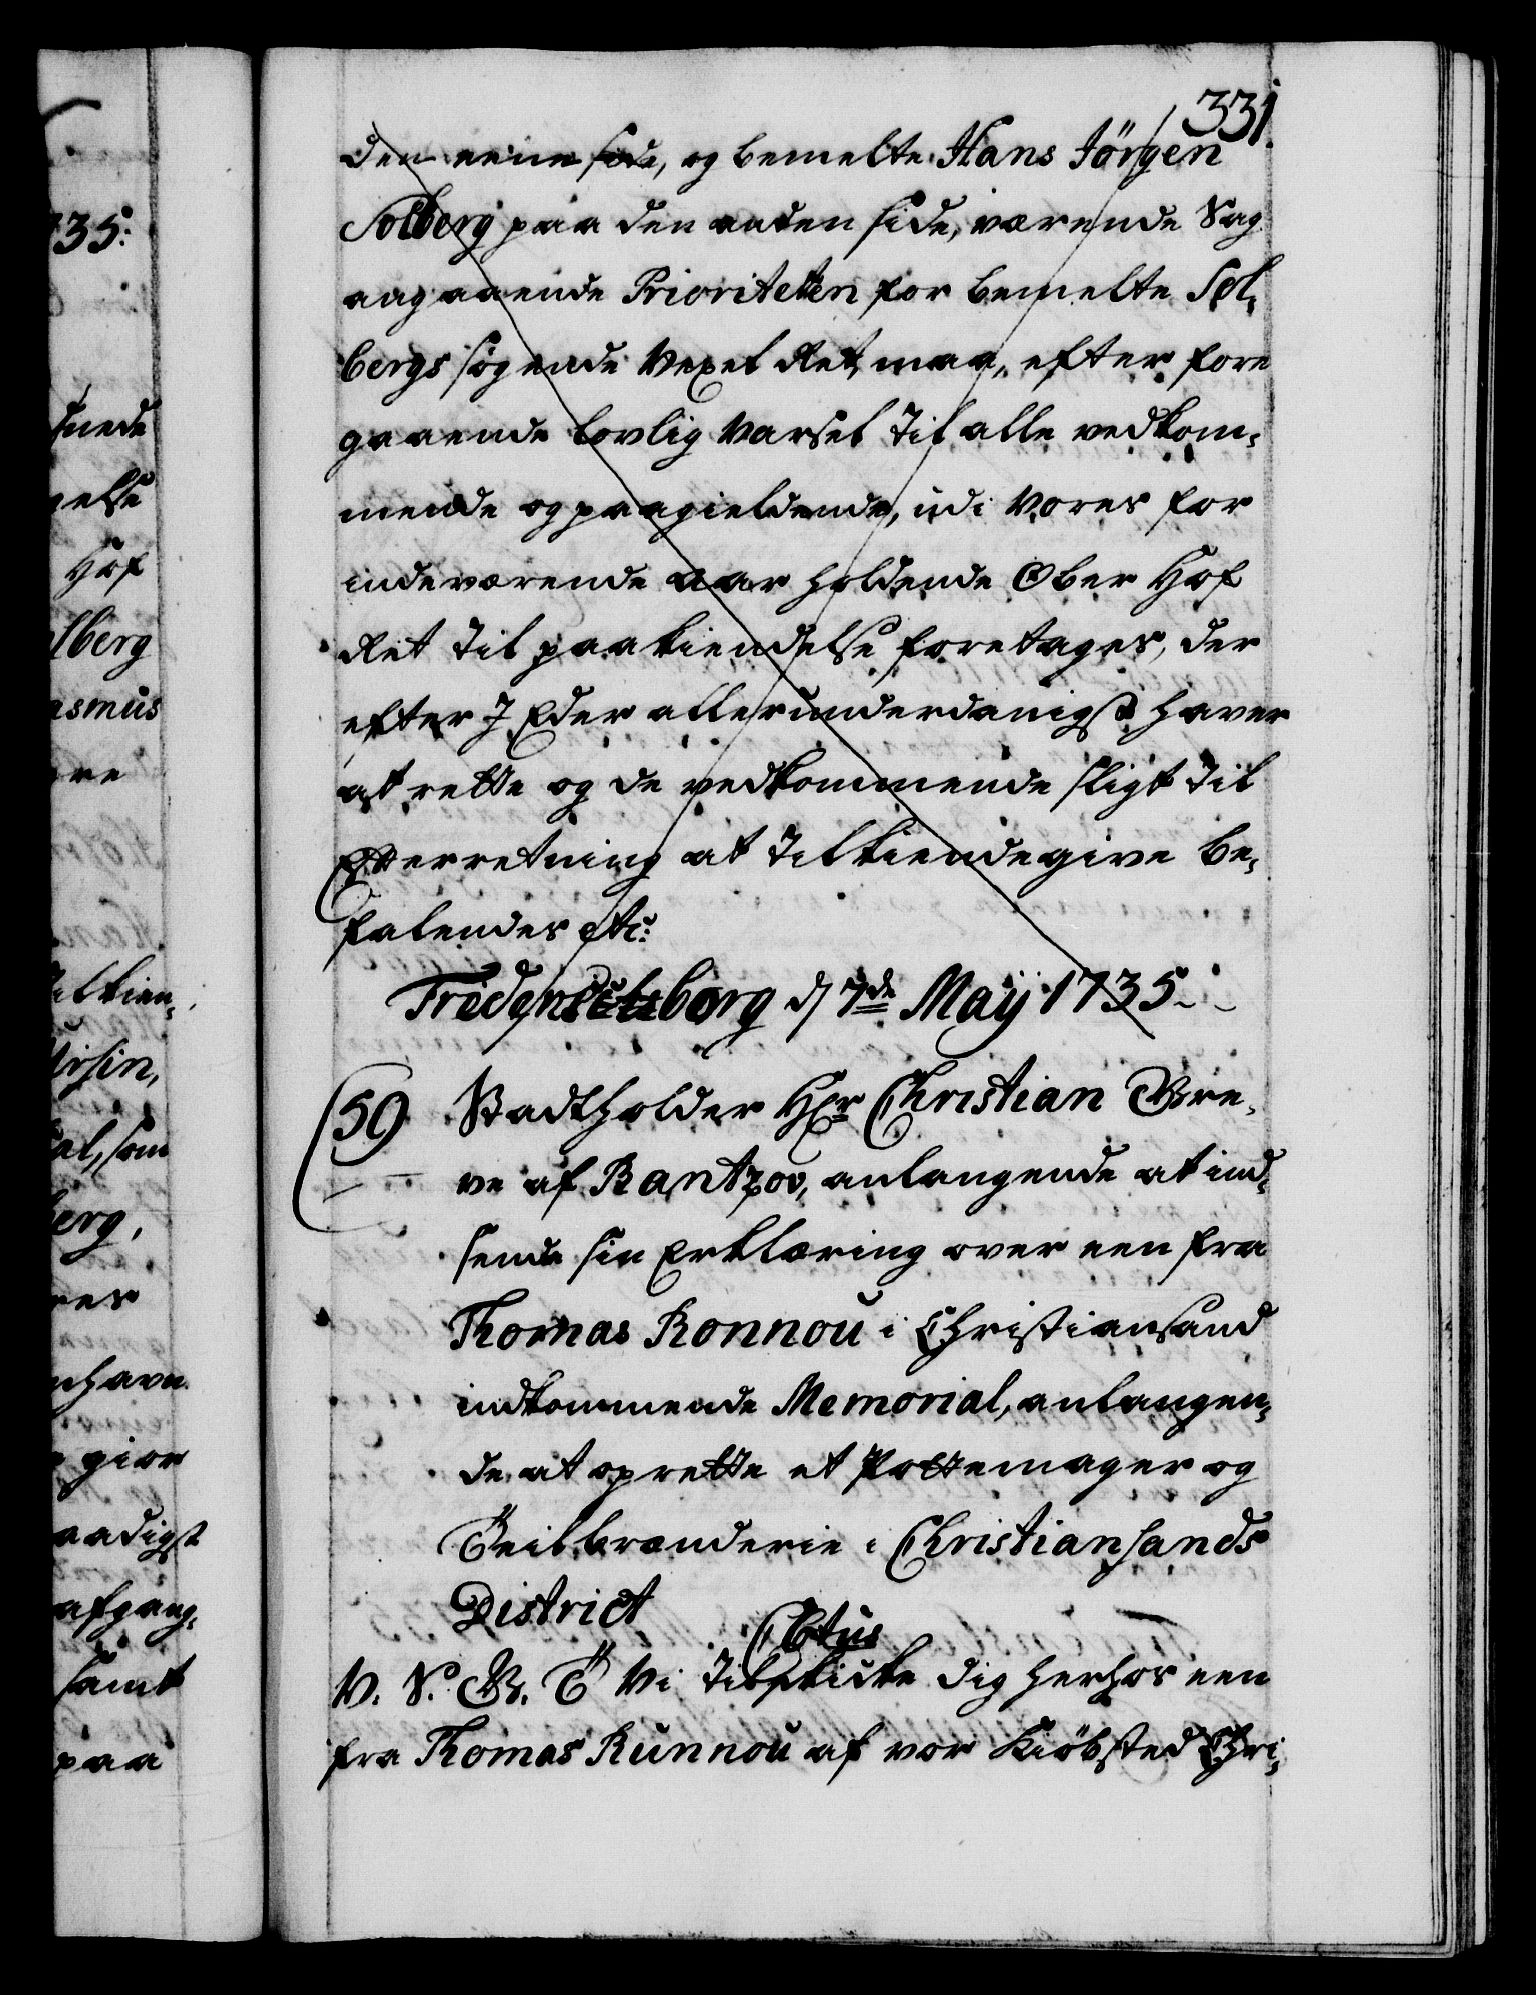 331.
den eene side, og bemelte Hans Jörgen
Solberg paa den anden side, værende Sag
angaaende Prioriteten for bemelte Sol,
bergs søgende Vexel Ret, maa, efter fore
gaaende lovlig Varsel til alle vedkom,
mende og paagieldende, udi Vores for
indeværende aar holdende Ober Hof
Ret til paakiendelse foretages, der
efter I Eder allerunderdanigst haver
at rette og de vedkommende sligt til
Efterretning at tilkiendegive be,
falendes etc:
Fridensborg d 7de Maÿ 1735.
59 Stadtholder Hr Christian Gre,
ve af Rantzov, anlangende at ind,
sende sin Erklæring over een fra
Thomas Ronnou i Christiansand
indkommende Memorial, anlangen,
de at oprette et Pottemager og
Teilbrænderie i Christiansands
District
V. S. G. T Vi tilskicke dig herhos een
fra Thomas Runnou af vor Kiöbsted Chri,
35:
snede
else
Hof
lberg
asmus
re
ilkien,
Ursin,
el, som
erg,
res
nhavn
gior
aadigst
afgang,
samt
paa